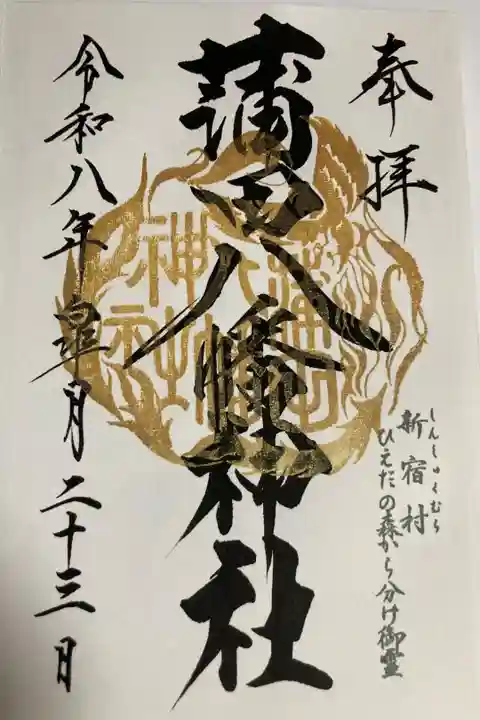 奉拝
蒲田八幡神社
蒲田
八幡
神社
しんしゅくむら
新宿村
ひえだの森から分け御霊
令和八年皐月二十三日